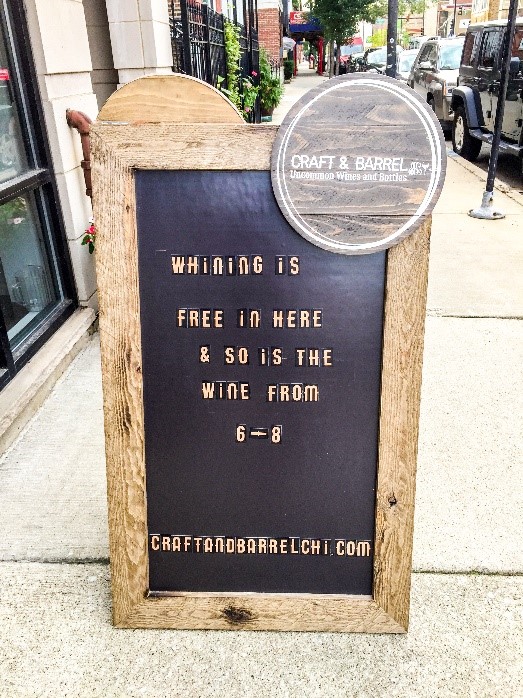 CRAFT & BARREL
Uncommon Wines and Sorties
WHiNiNG iS
FREE iN HERE
& SO iS THE
WiNE FROM
6-8
CRAFTANDBARRELCHi.COM